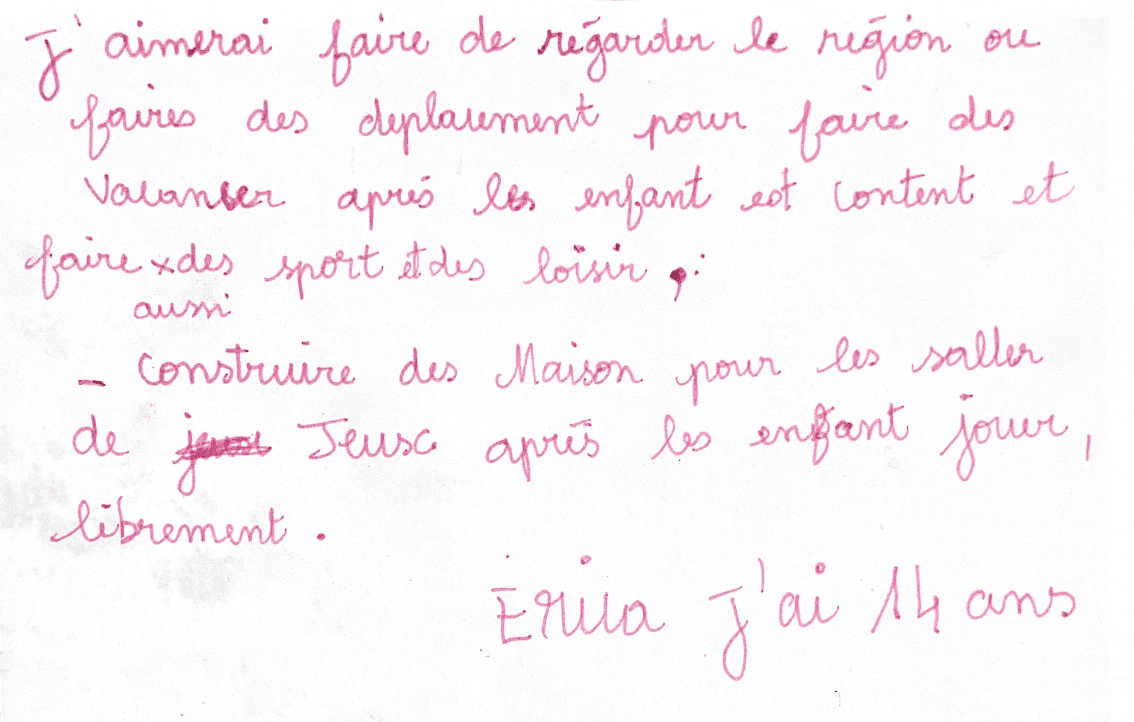 J'aimerai faire de régarder le région ou
faires des deplacement pour faire des
Vacanser après les enfant est content et
faire x des sport et des loisir,
aussi
- Construire des Maison pour les saller
de Jeusc après les enfant jouer,
librement.
Erica J'ai 14 ans